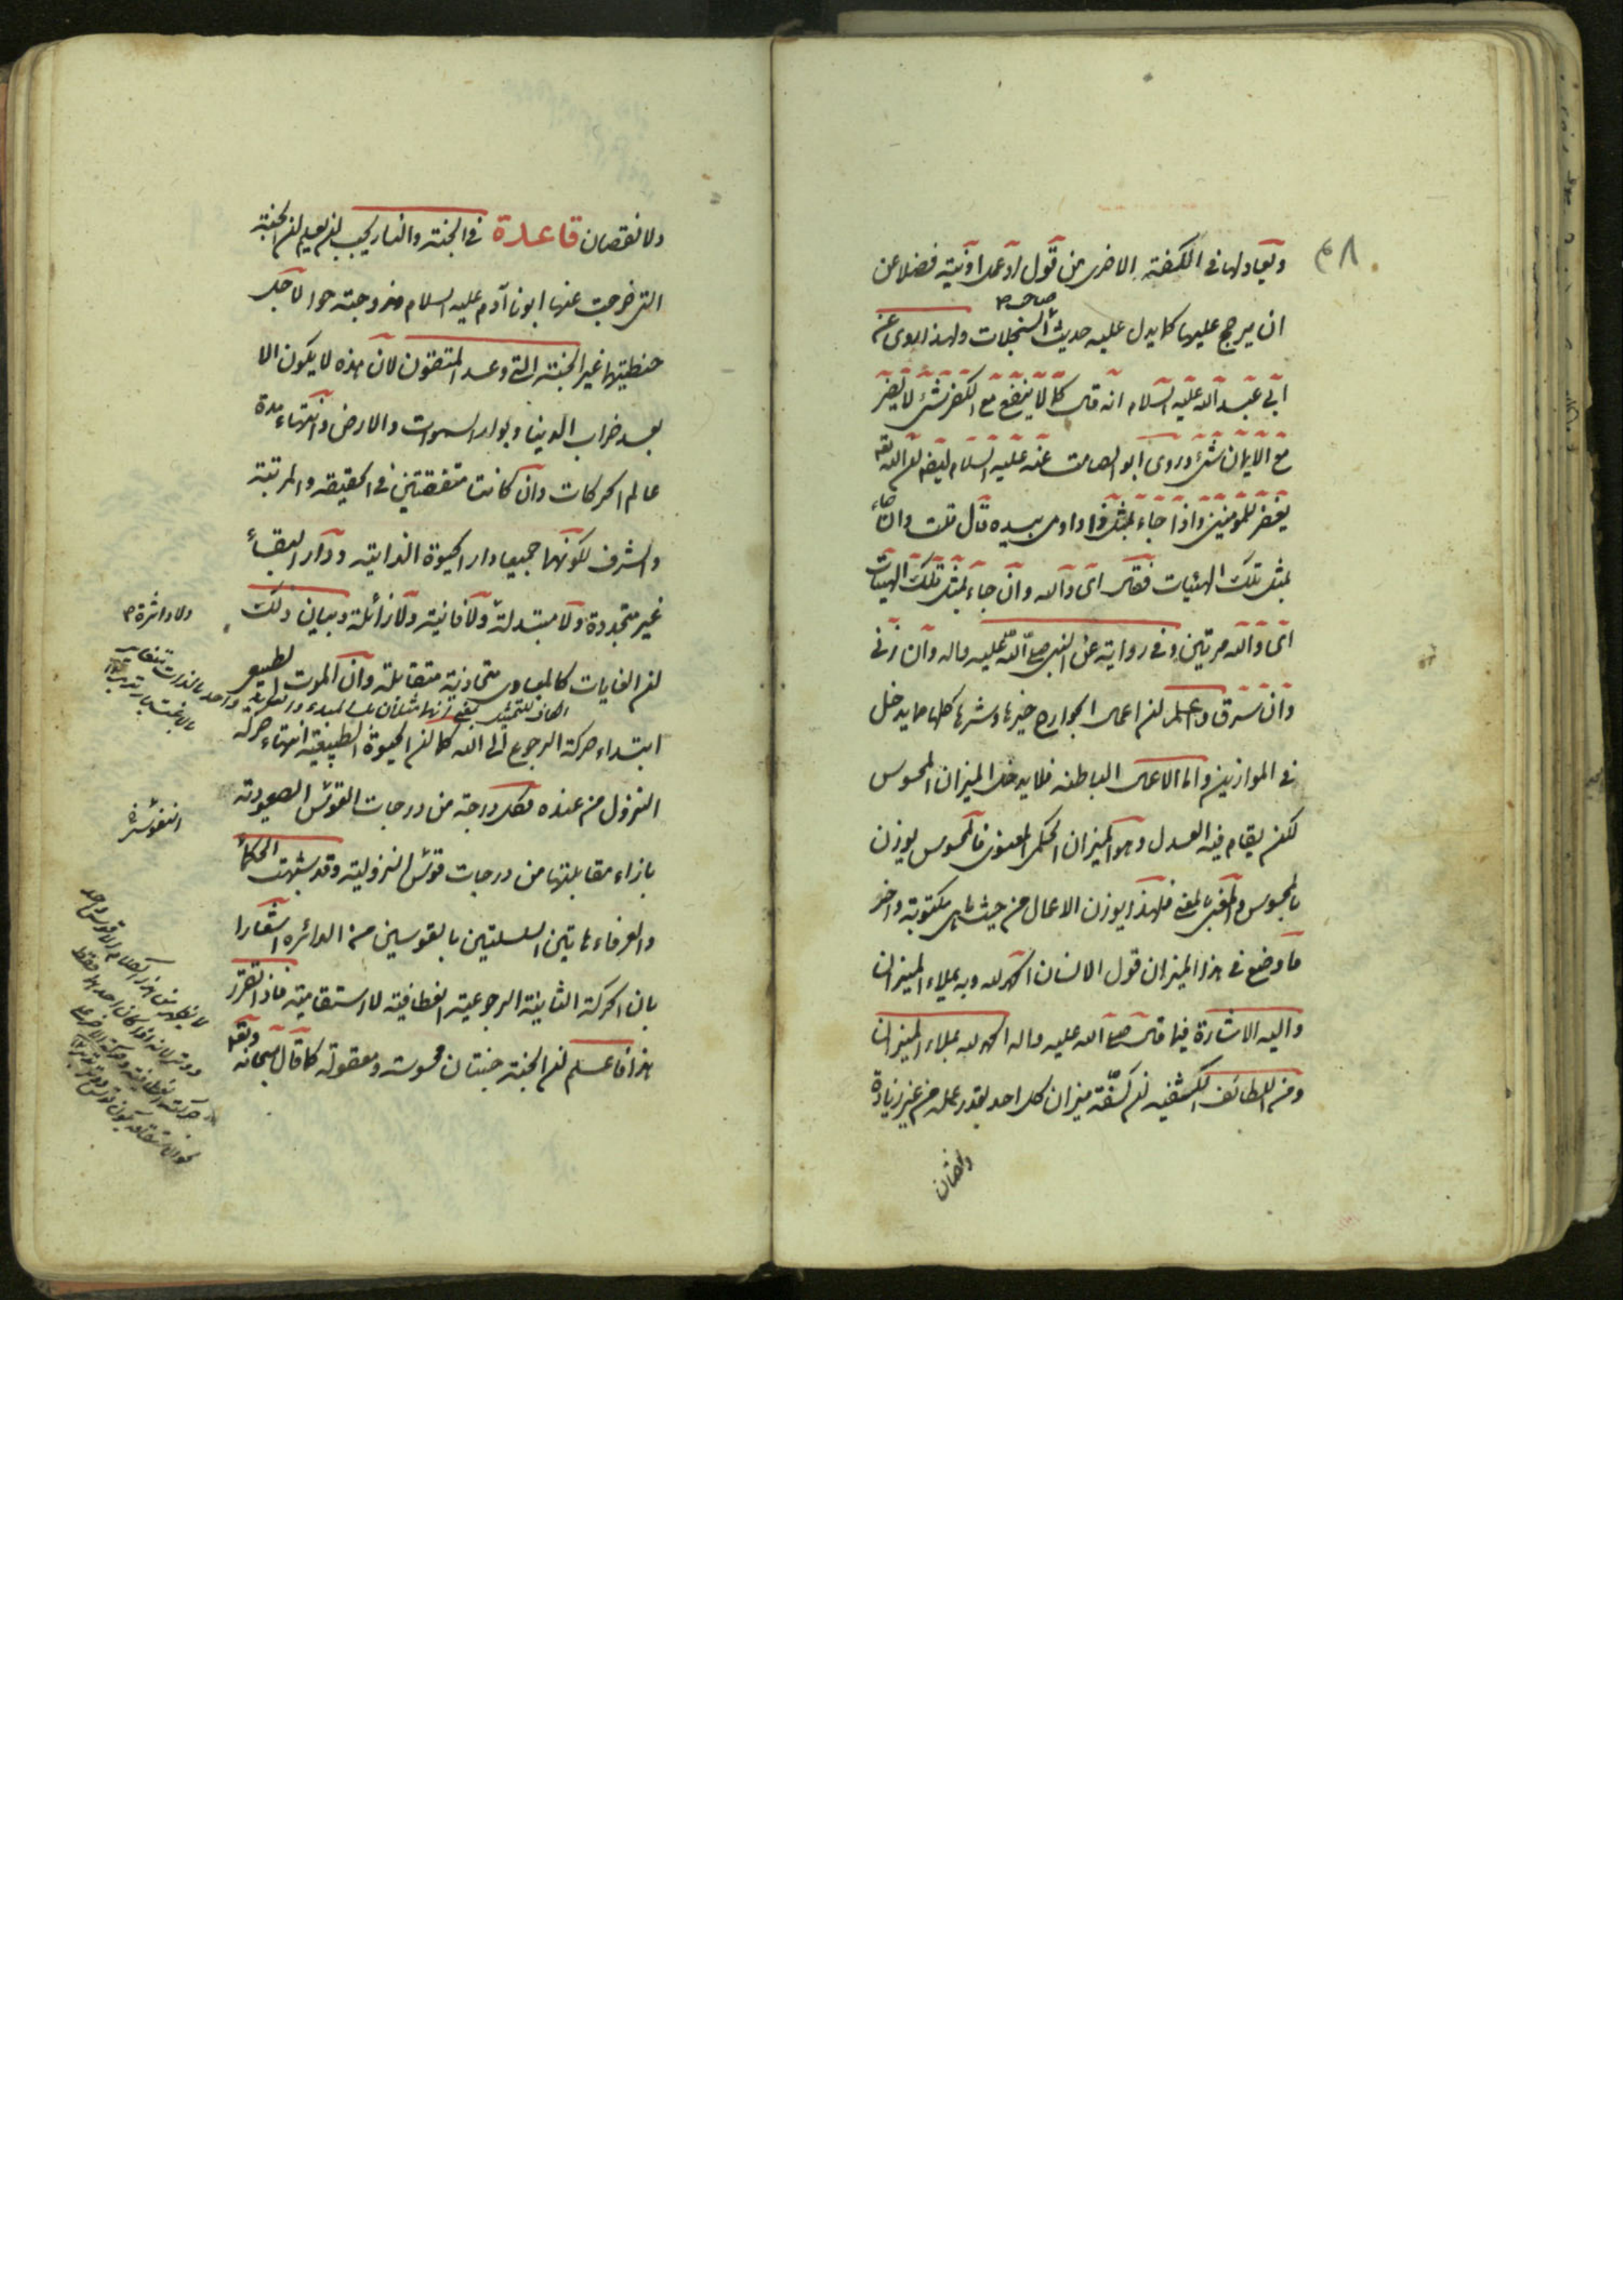 ٤٨
ويعادلها في الكفة الاخرى من قول او عمل او نية فضلا عن
ان يرجح عليها كما يدل عليه حديث صاحب السجلات ولهذا روى عن
ابي عبد الله عليه السلام انه قال كما لا ينفع مع الكفر شئ لا يضر
مع الايمان شئ وروى ابو الصامت عنه عليه السلام ايضا ان الله تعالى
يغفر للمؤمنين واذا جاء بمثل ذا واومى بيده قال قلت وان جاء
بمثل تلك الهيئات فقال اى والله وان جاء بمثل تلك الهيئات
اى والله مرتين وفي رواية عن النبي صلى الله عليه واله وان زنى
وان سرق واعلم ان اعمال الجوارح خيرها وشرها كلها مما يدخل
في الموازين واما الاعمال الباطنه فلا يدخل الميزان المحسوس
لكن يقام فيه العدل وهو الميزان الحكمى المعنوى فالمحسوس يوزن
بالمحسوس والمعنى بالمعنى فلهذا يوزن الاعمال من حيث ما هى مكتوبة واخر
ما وضع في هذا الميزان قول الانسان الحمد لله وبه يملاء الميزان
واليه الاشارة فيما قال صلى الله عليه واله الحمد لله يملاء الميزان
ومن اللطائف الكشفيه ان كفة ميزان كل احد بقدر عمله من غير زيادة
ولا نقصان
ولا نقصان قاعدة في الجنة والنار يجب ان يعلم ان الجنة
التي خرجت عنها ابونا آدم عليه السلام وزوجته حوا لاجل
خطيئتها غير الجنة التي وعد المتقون لان هذه لا يكون الا
بعد خراب الدنيا وبوار السموات والارض وانتهاء مدة
عالم الحركات وان كانت متفقتين في الحقيقه والمرتبة
والشرف لكونهما جميعا دار الحيوة الذاتية ودار البقاء
غير متجددة ولا متبدلة ولا فانية ولا زائلة وبيان ذلك
ولا داثرة
ان الغايات كالمبادى متحاذية متقابلة وان الموت الطبيعى
ابتداء حركة الرجوع الى الله كما ان الحيوة الطبيعية انتهاء حركه
النزول من عنده فكل درجة من درجات القوس الصعودية
بازاء مقابلتها من درجات قوس النزولية وقد شبهت الحكماء
والعرفاء هاتين السلسلتين بالقوسين من الدائره اشعارا
بان الحركة الثانية الرجوعية انعطافية لا استقامية فاذا تقرر
هذا فاعلم ان الجنة جنتان محسوسة ومعقولة كما قال سبحانه وتعالى